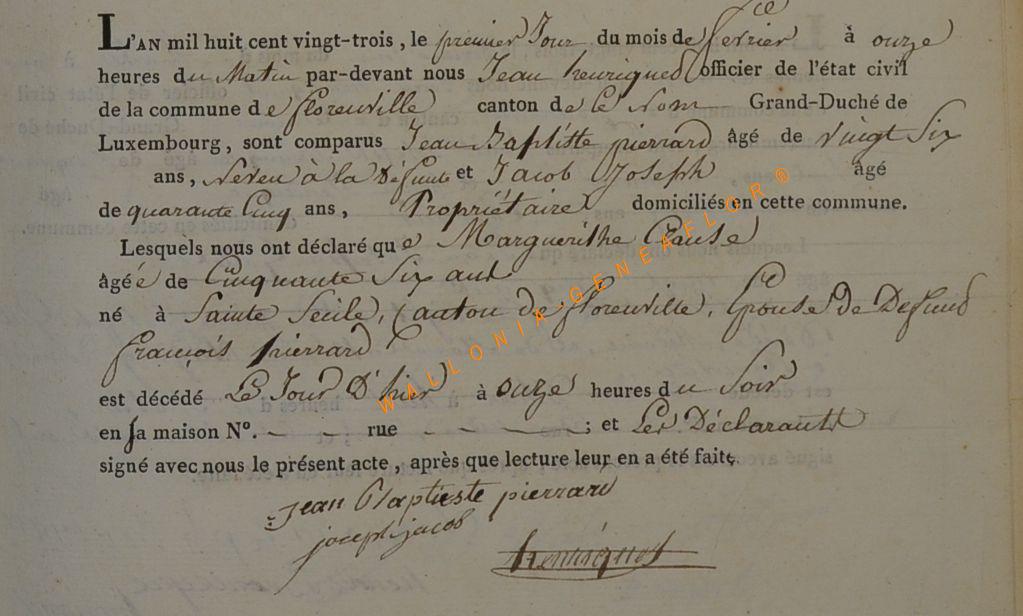 L'AN mil huit cent vingt-trois, le premier Jour du mois de fevrier à onze
heures du Matin par-devant nous Jean henriquet officier de l'état civil
de la commune de florenville canton de Ce Nom Grand-Duché de
Luxembourg, sont comparus Jean Baptiste pierrard âgé de vingt Six
ans, Neveu à la Défunte et Jacob Joseph âgé
de quarante Cinq ans, Propriétaire domiciliés en cette commune.
Lesquels nous ont déclaré que Marguerithe
âgée de Cinquante Six ans
né à Sainte Secile, Canton de florenville, Epouse de Defund
françois pierrard
est décédé Le Jour D'hier à onze heures du Soir
en sa maison N°. - - rue - - - - ; et Les Déclarants
signé avec nous le présent acte, après que lecture leur en a été faite.
jean Baptieste pierrard
joseph jacob
henriquet
WALLONIA GENEAFLOR ®